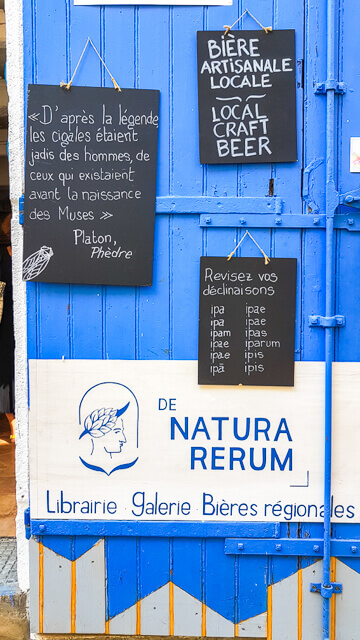 « D'après la légende,
les cigales étaient
jadis des hommes, de
ceux qui existaient
avant la naissance
des Muses »
Platon,
Phèdre
BIÈRE
ARTISANALE
LOCALE
LOCAL
CRAFT
BEER
Revisez vos
déclinaisons
ipa ipae
ipa ipae
ipam ipas
ipae iparum
ipae ipis
ipā ipis
DE
NATURA
RERUM
Librairie · Galerie · Bières régionales